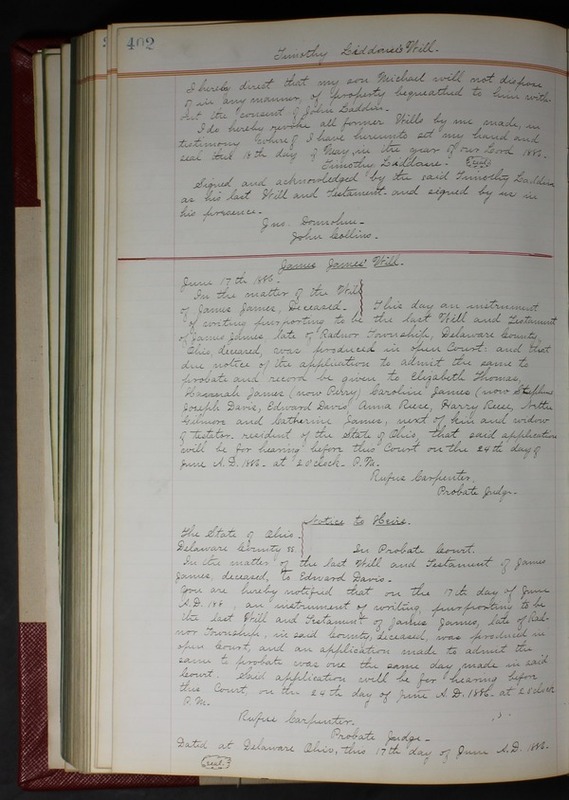 402
Timothy Liddane's Will.
I hereby direct that my son Michael will not dispose
of in any manner, of property bequeathed to him with-
out the consent of John Laddin.
I do hereby revoke all former Wills by me made, in
testimony whereof I have hereunto set my hand and
seal this 18th day of May, in the year of our Lord 1886.
Timothy Liddane. Seal
Signed and acknowledged by the said Timothy Liddane
as his last Will and Testament and signed by us in
his presence.
Jno. Donohue.
John Collins.
James James' Will.
June 17th 1886.
In the matter of the Will
of James James, Deceased. This day an instrument
of writing purporting to be the last Will and Testament
of James James, late of Radnor Township, Delaware County,
Ohio, deceased, was produced in open Court: and that
due notice of the application to admit the same to
probate and record be given to Elizabeth Thomas,
Hannah James (now Perry) Caroline James (now Stephens
Joseph Davis, Edward Davis Anna Reece, Harry Reece, Nettie
Gillmore and Catherine James, next of kin and widow
of testator. resident of the State of Ohio, that said application
will be for hearing before this Court on the 24th day of
June A.D. 1886. at 2 o'clock P.M.
Rufus Carpenter,
Probate Judge.
Notice to Heirs.
The State of Ohio.
Delaware County ss In Probate Court.
In the matter of the last Will and Testament of James
James, deceased, to Edward Davis.
You are hereby notified that on the 17th day of June
A.D. 188 , an instrument of writing, purporting to be
the last Will and Testament of James James, late of Rad-
nor Township, in said County, deceased, was produced in
open Court, and an application made to admit the
same to probate was one the same day made in said
Court. Said application will be for hearing before
this Court, on the 24th day of June A.D. 1886. at 2 o'clock
P.M.
Rufus Carpenter.
Probate Judge.
Dated at Delaware Ohio, this 17th day of June A.D. 1886.
seal.